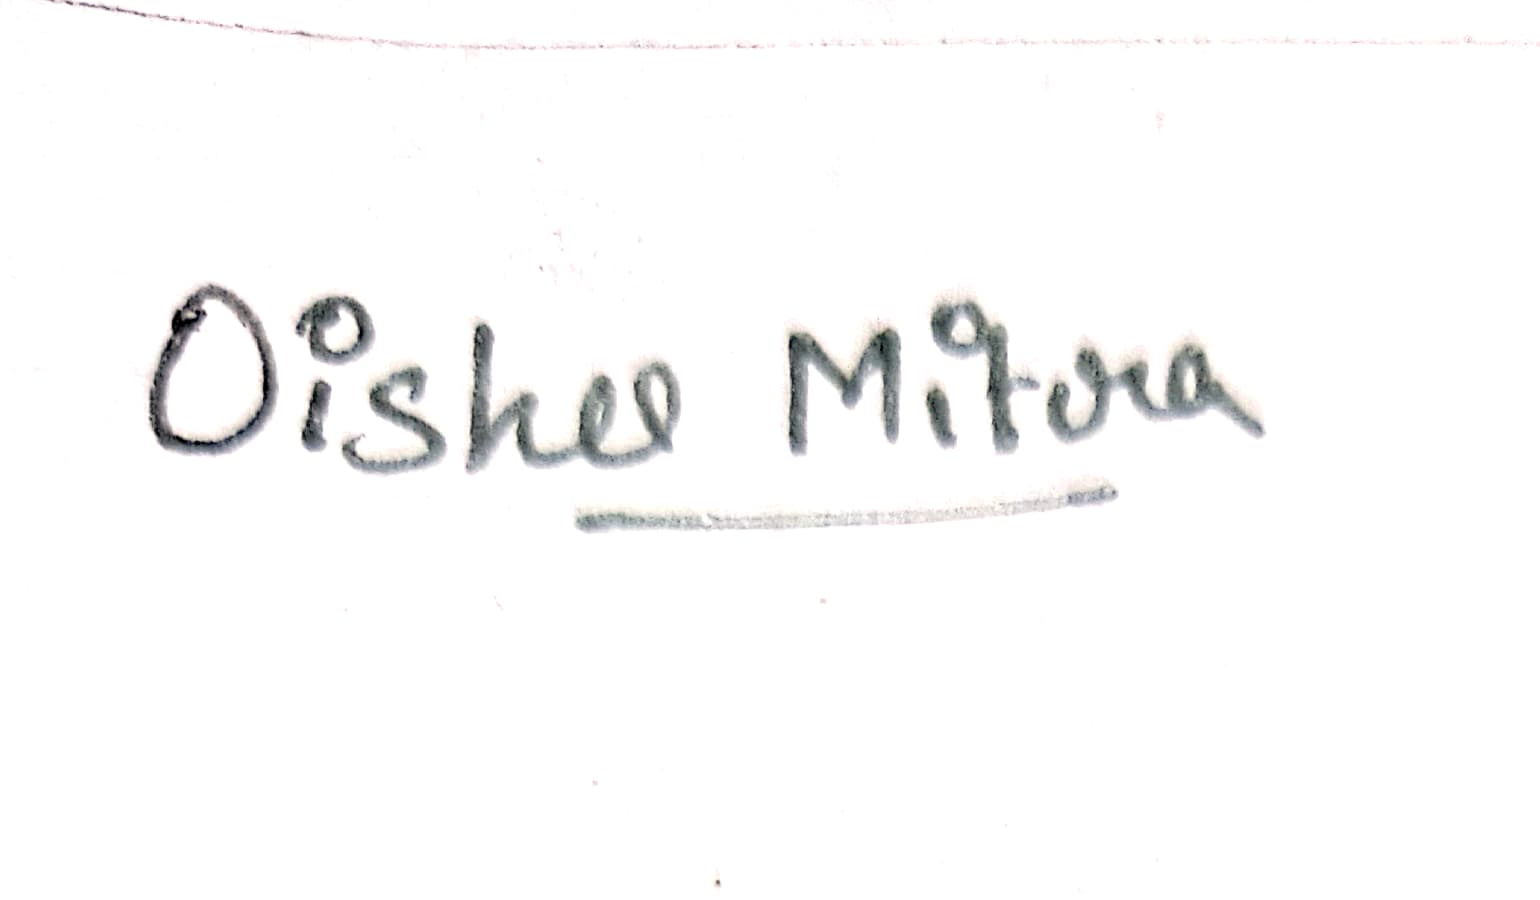 Oishee Mitra